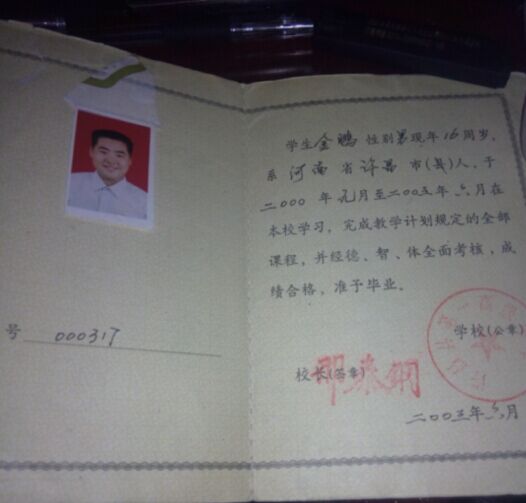 号 000317
学生金鹏性别男现年16周岁,
系河南省许昌市(县)人,于
二000年九月至二00三年六月在
本校学习,完成教学计划规定的全部
课程,并经德、智、体全面考核,成
绩合格,准予毕业。
学校(公章)
校长(签章)
二00三年六月